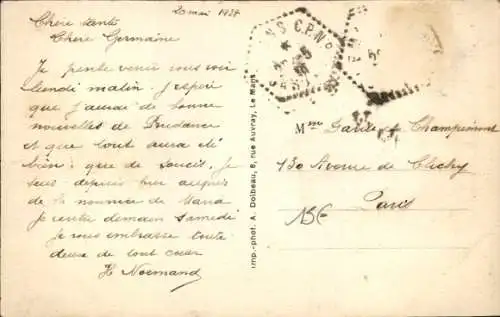 2 mai 1938
Chère tante
Chère Germaine
Je pense venir vous voir
lundi matin. J'espère
que j'aurai de bonne
nouvelles de Prudence
et que tout aura été
bien; que de soucis. Je
suis depuis hier auprès
de la nounice de Nana
Je rentre demain samedi
je vous embrasse toute
deux de tout cœur
H Normand
Imp.-phot. A. Dolbeau, 6, rue Auvray, Le Mans
Mme & Championnet
130 Avenue de Clichy
Paris